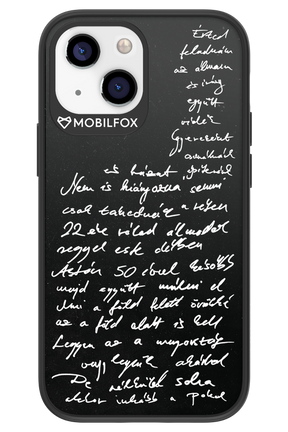 Érted
feladnám
az álmam
és így
együtt
veled
Gyereket
csinálnék
MOBILFOX
és házat építenék
Nem is hiányozna semmi
csak takednék a részen
22 év rólad álmodok
reggel este délben
Aztán 50 évvel később
majd együtt múlni el
Ami a föld felett örökké
az a föld alatt is kell
Legyen az a mennyország
vagy legyünk akárhol
De nélküled soha
akkor inkább a Pokol